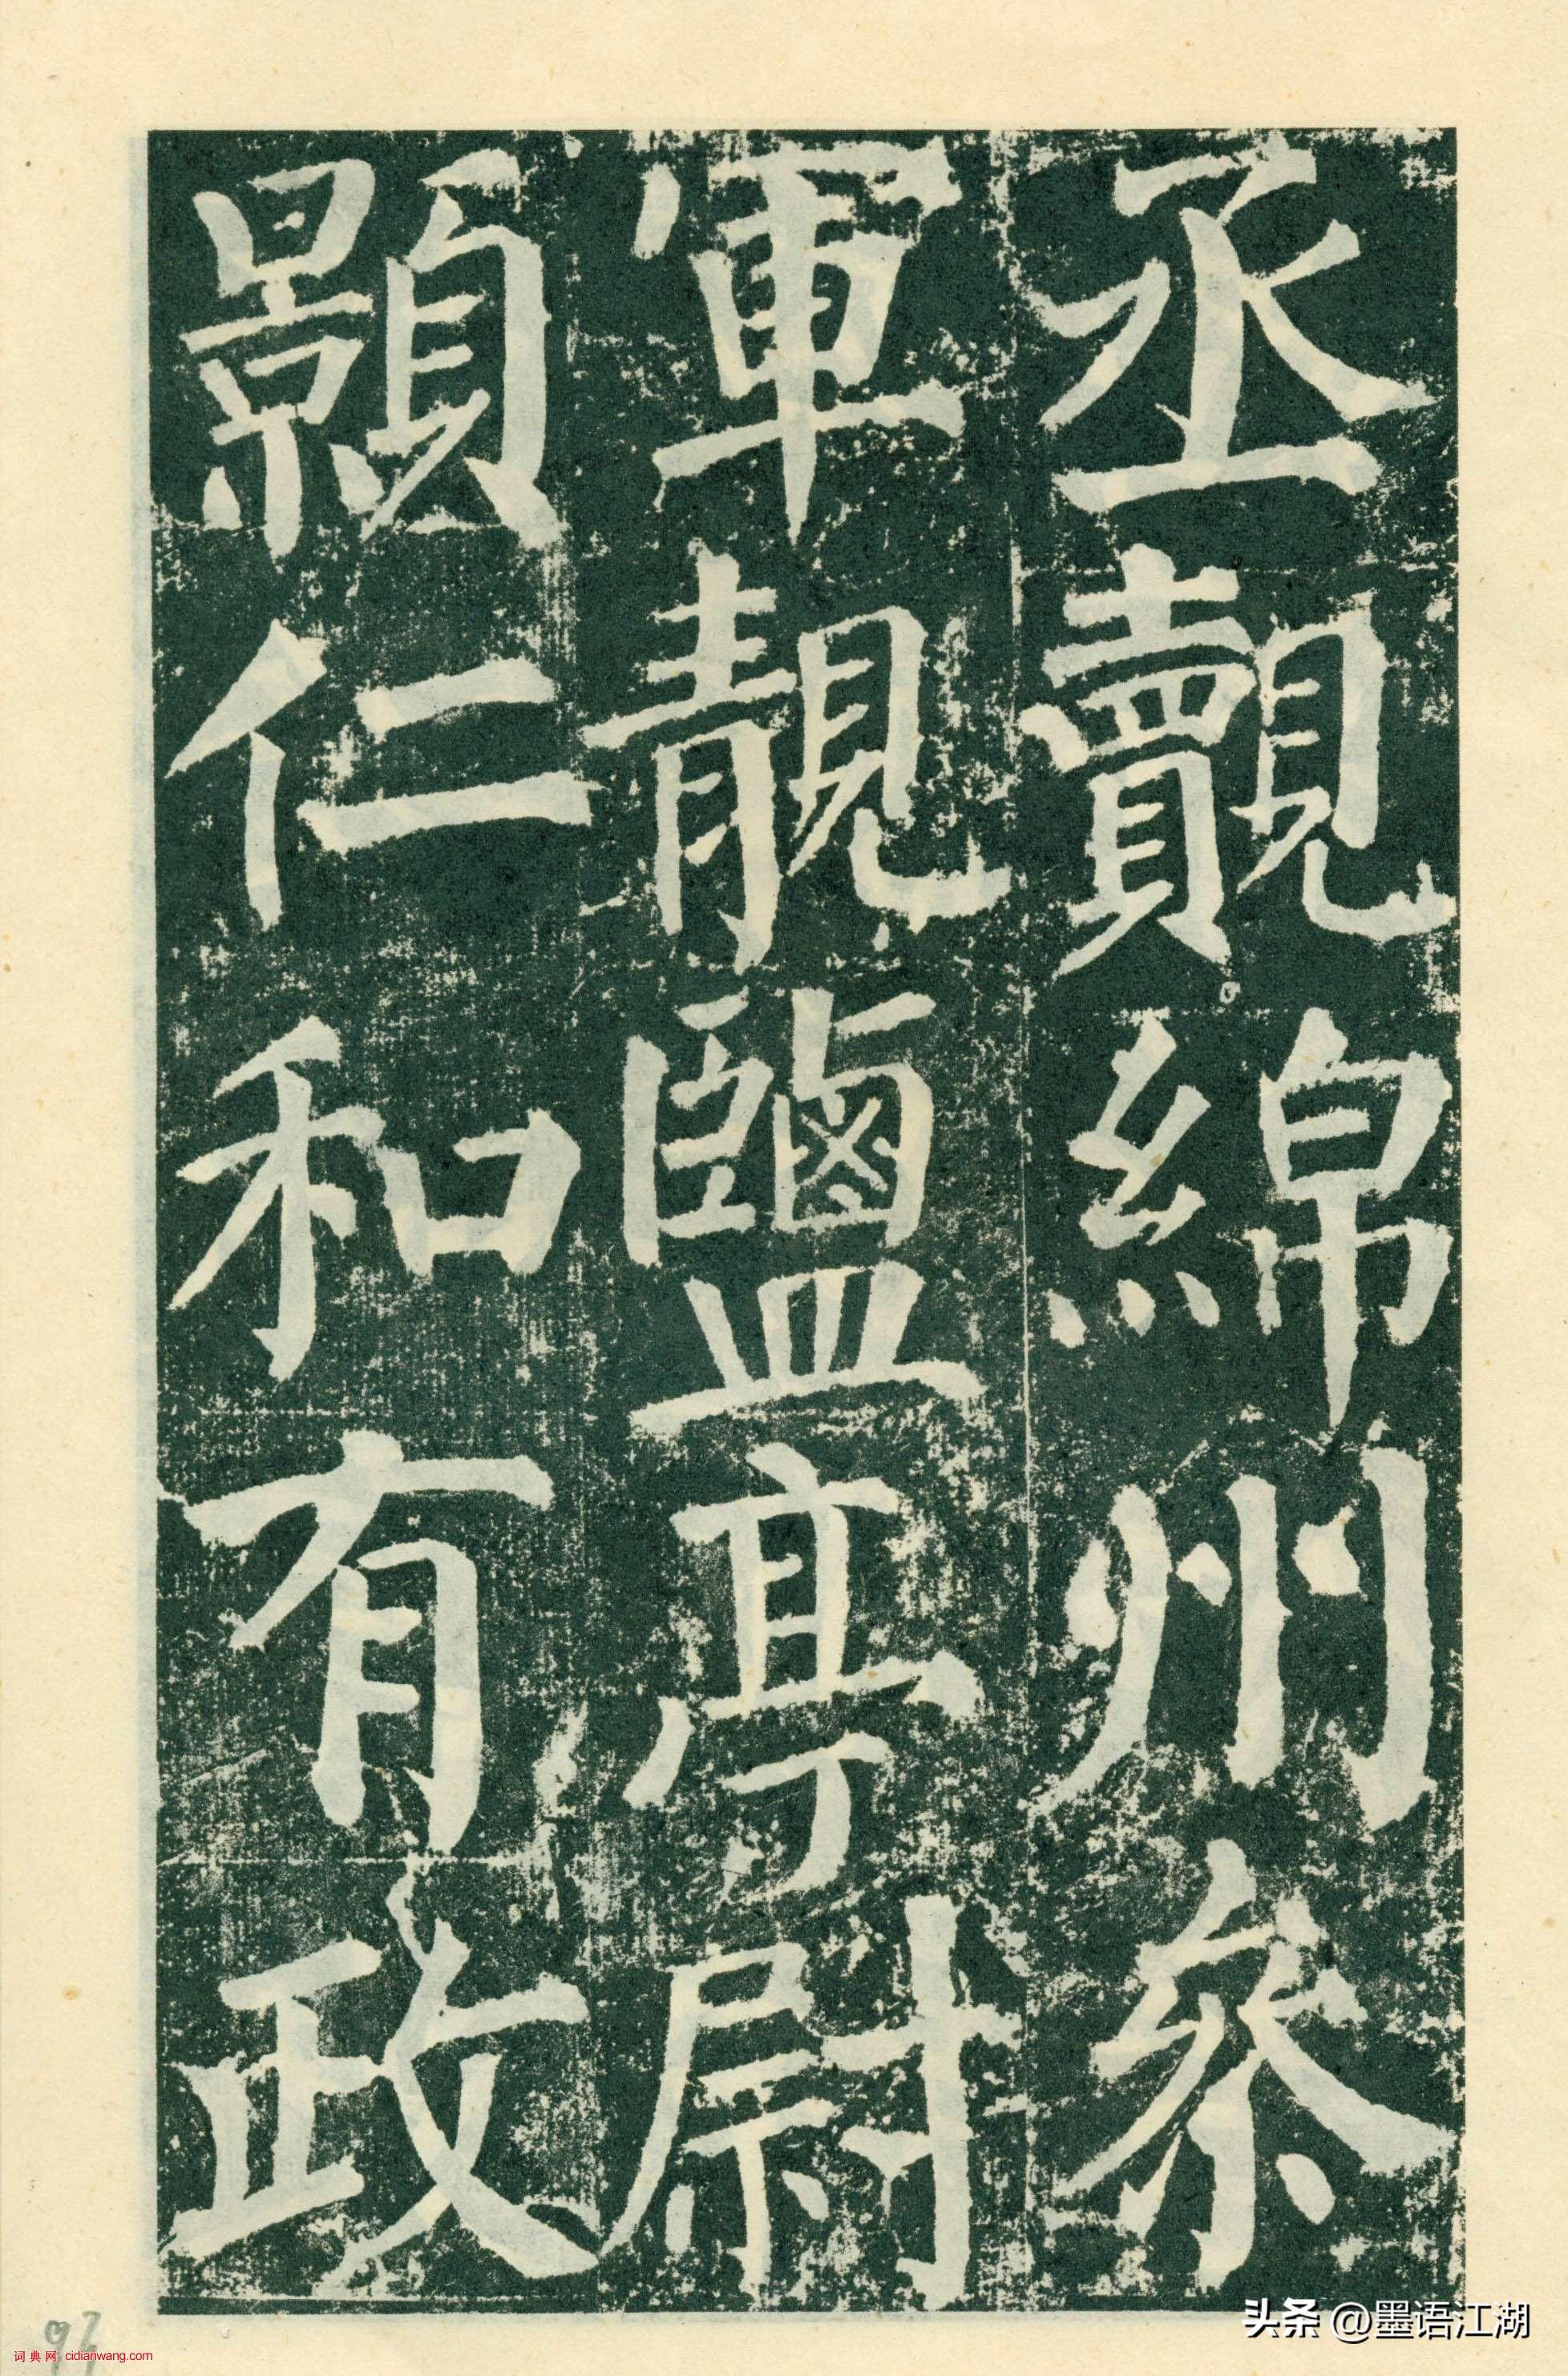 丞覿綿州參
軍靚鹽亭尉
顥仁和有政
头条 @墨语江湖
词典网 cidianwang.com